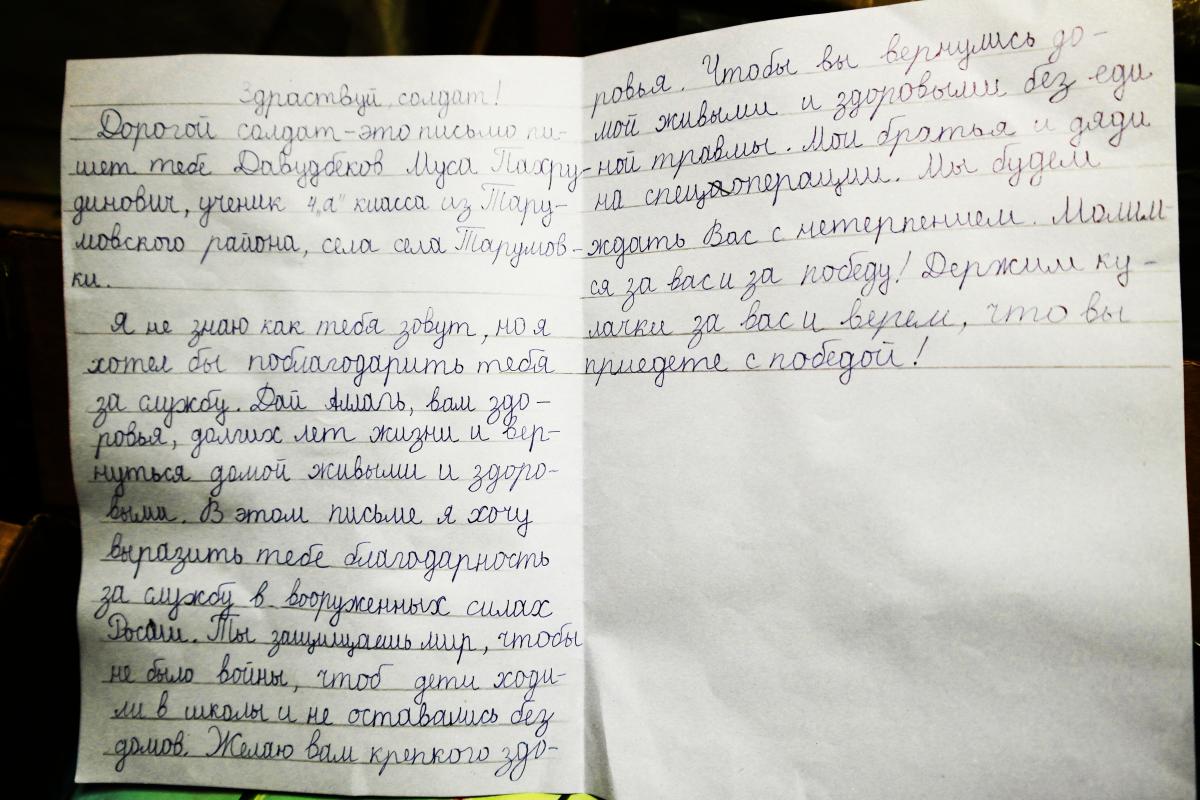 Здраствуй, солдат!
Дорогой солдат-это письмо пи-
шет тебе Давудбеков Муса Пахру-
динович, ученик 4 „а" класса из Тару-
мовского района, села села Тарумов-
ки.
Я не знаю как тебя зовут, но я
хотел бы поблагодарить тебя
за службу. Дай Аллагь, вам здо-
ровья, долгих лет жизни и вер-
нуться домой живыми и здоро-
выми. В этом письме я хочу
выразить тебе благодарность
за службу в вооруженных силах
России. Ты защищаешь мир, чтобы
не было войны, чтоб дети ходи-
ли в школы и не оставались без
домов. Желаю вам крепкого здо-
ровья. Чтобы вы вернулись до-
мой живыми и здоровыми без еди
ной травмы. Мои братья и дяди
на спецоперации. Мы будем
ждать Вас с нетерпением. Молим-
ся за вас и за победу! Держим ку-
лачки за вас и верем, что вы
приедете с победой!